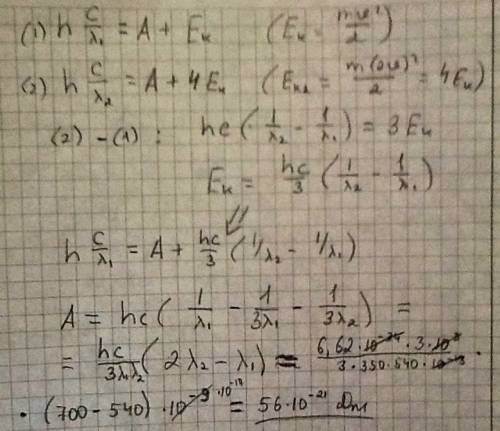 (1) h c/λ₁ = A + Eк (Eк = mv²/2)
(2) h c/λ₂ = A + 4Eк (Eк₂ = m(2v)²/2 = 4Eк)
(2) - (1) : hc(1/λ₂ - 1/λ₁) = 3Eк
Eк = hc/3 (1/λ₂ - 1/λ₁)
h c/λ₁ = A + hc/3 (1/λ₂ - 1/λ₁)
A = hc(1/λ₁ - 1/3λ₁ - 1/3λ₂) =
= hc/3λ₁λ₂ (2λ₂ - λ₁) = 6,62·10⁻³⁴·3·10⁸/3·350·540·10⁻¹⁸ ·
· (700 - 540) · 10⁻⁹ = 56·10⁻²¹ Дж